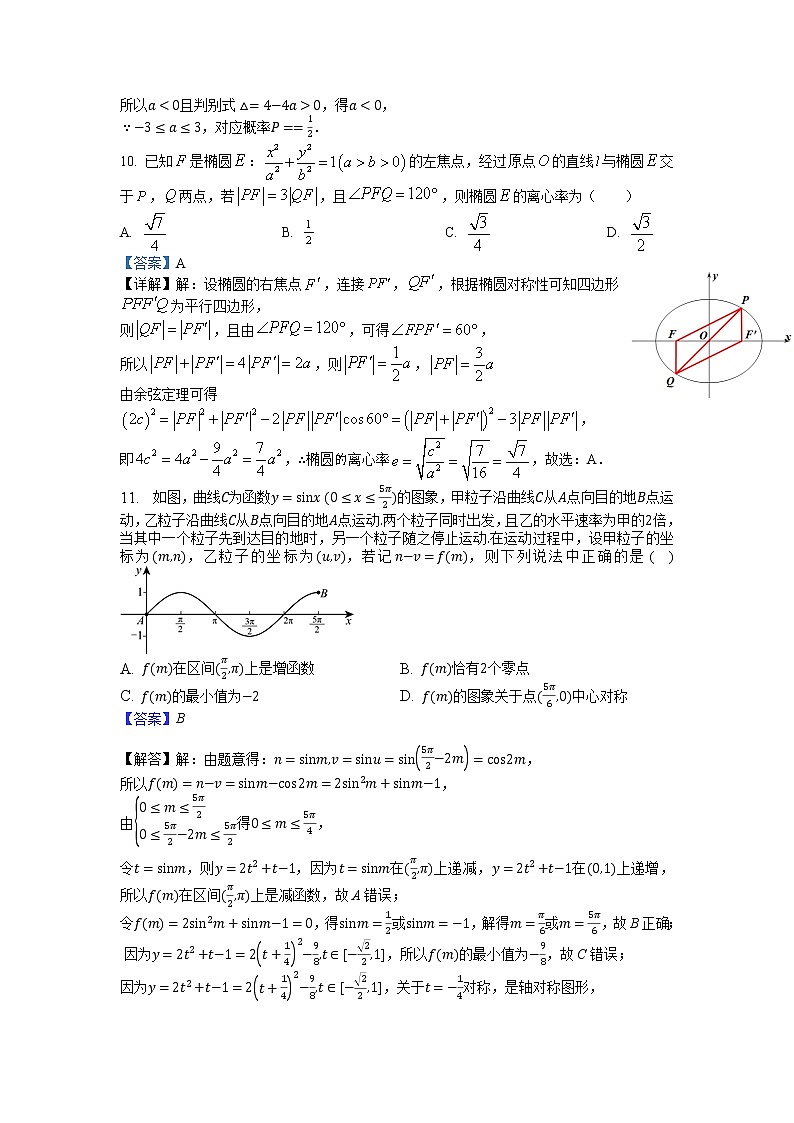 所以a<0且判别式△=4−4a>0，得a<0，
∵−3≤a≤3，对应概率P==1/2．
10. 已知F是椭圆E：x²/a²+y²/b²=1(a>b>0)的左焦点，经过原点O的直线l与椭圆E交
于P，Q两点，若|PF|=3|QF|，且∠PFQ=120°，则椭圆E的离心率为（　　）
A. √7/4 B. 1/2 C. √3/4 D. √3/2
【答案】A
【详解】解：设椭圆的右焦点F′，连接PF′，QF′，根据椭圆对称性可知四边形
PFF′Q为平行四边形，
则|QF|=|PF′|，且由∠PFQ=120°，可得∠FPF′=60°，
所以|PF|+|PF′|=4|PF′|=2a，则|PF′|=1/2a，|PF|=3/2a
由余弦定理可得
(2c)²=|PF|²+|PF′|²−2|PF||PF′|cos60°=(|PF|+|PF′|)²−3|PF||PF′|，
即4c²=4a²−9/4a²=7/4a²，∴椭圆的离心率e=√(c²/a²)=√(7/16)=√7/4，故选：A．
y
P
F
O
F′
x
Q
11. 如图，曲线C为函数y=sinx (0≤x≤5π/2)的图象，甲粒子沿曲线C从A点向目的地B点运
动，乙粒子沿曲线C从B点向目的地A点运动.两个粒子同时出发，且乙的水平速率为甲的2倍，
当其中一个粒子先到达目的地时，另一个粒子随之停止运动.在运动过程中，设甲粒子的坐
标为(m,n)，乙粒子的坐标为(u,v)，若记n−v=f(m)，则下列说法中正确的是（ ）
y
1
B
A
π/2 π 3π/2 2π 5π/2 x
−1
A. f(m)在区间(π/2,π)上是增函数 B. f(m)恰有2个零点
C. f(m)的最小值为−2 D. f(m)的图象关于点(5π/6,0)中心对称
【答案】B
【解答】解：由题意得：n=sinm,v=sinu=sin(5π/2−2m)=cos2m，
所以f(m)=n−v=sinm−cos2m=2sin²m+sinm−1，
由{0≤m≤5π/2 0≤5π/2−2m≤5π/2得0≤m≤5π/4，
令t=sinm，则y=2t²+t−1，因为t=sinm在(π/2,π)上递减，y=2t²+t−1在(0,1)上递增，
所以f(m)在区间(π/2,π)上是减函数，故A错误；
令f(m)=2sin²m+sinm−1=0，得sinm=1/2或sinm=−1，解得m=π/6或m=5π/6，故B正确；
因为y=2t²+t−1=2(t+1/4)²−9/8,t∈[−√2/2,1]，所以f(m)的最小值为−9/8，故C错误；
因为y=2t²+t−1=2(t+1/4)²−9/8,t∈[−√2/2,1]，关于t=−1/4对称，是轴对称图形，